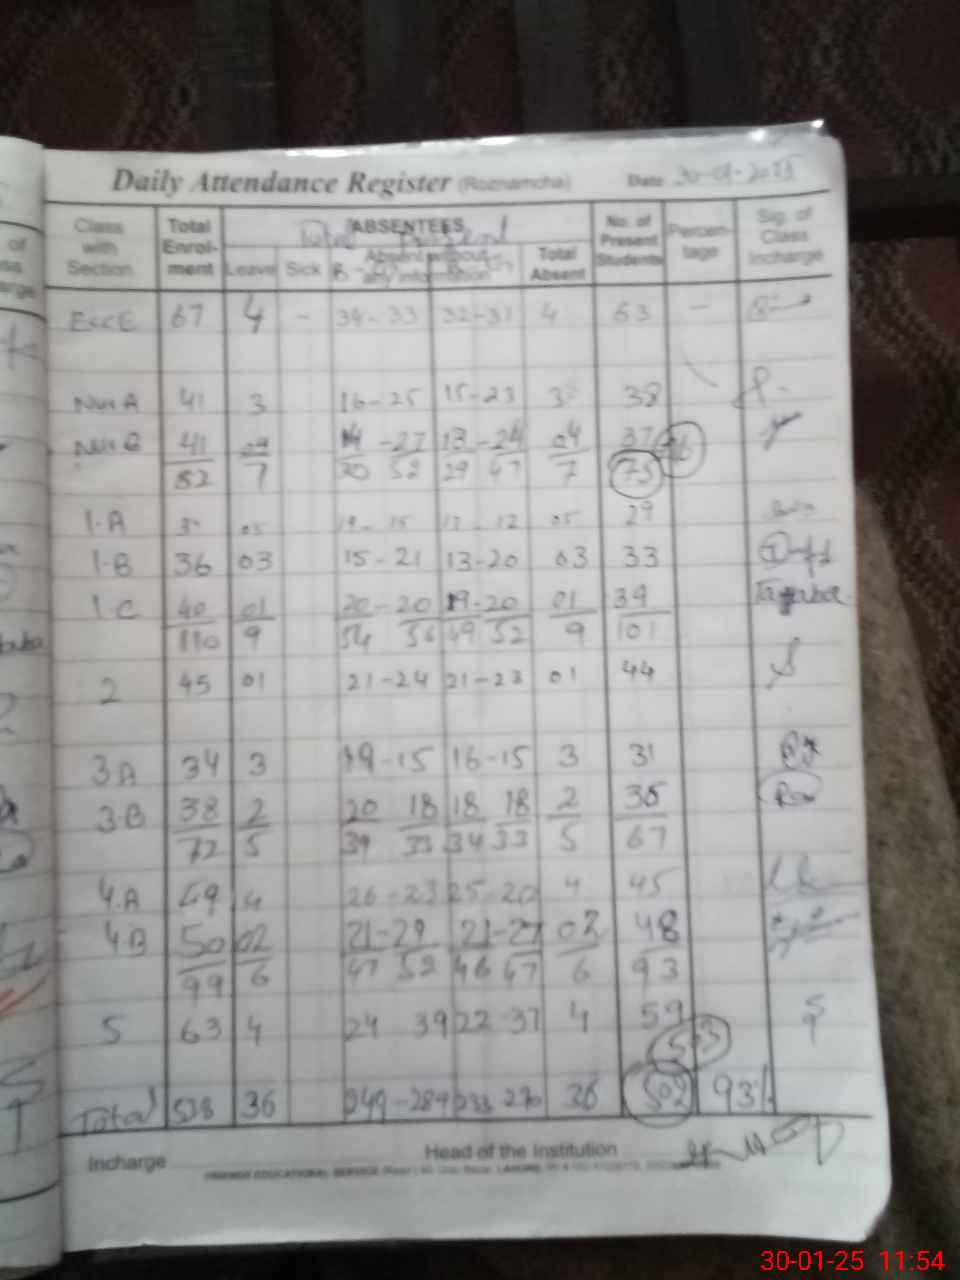 Daily Attendance Register (Roznamcha) Date 30-01-2025
Class with Section Total Enrol-ment ABSENTEES No. of Present Students Percen-tage Sig. of Class Incharge
Total Present
Leave Sick Absent without any information Total Absent
EccE 67 4 - 34-33 32-31 4 63 -
Nur A 41 3 16-25 15-23 3 38
Nur B 41 04 14-27 13-24 04 37
82 7 30 52 29 47 7 75 76
1-A 05 19-15 17-12 05 29
1-B 36 03 15-21 13-20 03 33
1-C 40 01 20-20 19-20 01 39
110 9 54 56 49 52 9 101
2 45 01 21-24 21-23 01 44
3-A 34 3 19-15 16-15 3 31
3-B 38 2 20 18 18 18 2 36
72 5 39 33 34 33 5 67
4-A 49 4 26-23 25-20 4 45
4-B 50 02 21-29 21-27 02 48
99 6 47 52 46 47 6 93
5 63 4 24 39 22-37 4 59
503
Total 538 36 249-289 233 270 36 502 93%
Incharge Head of the Institution
30-01-25 11:54